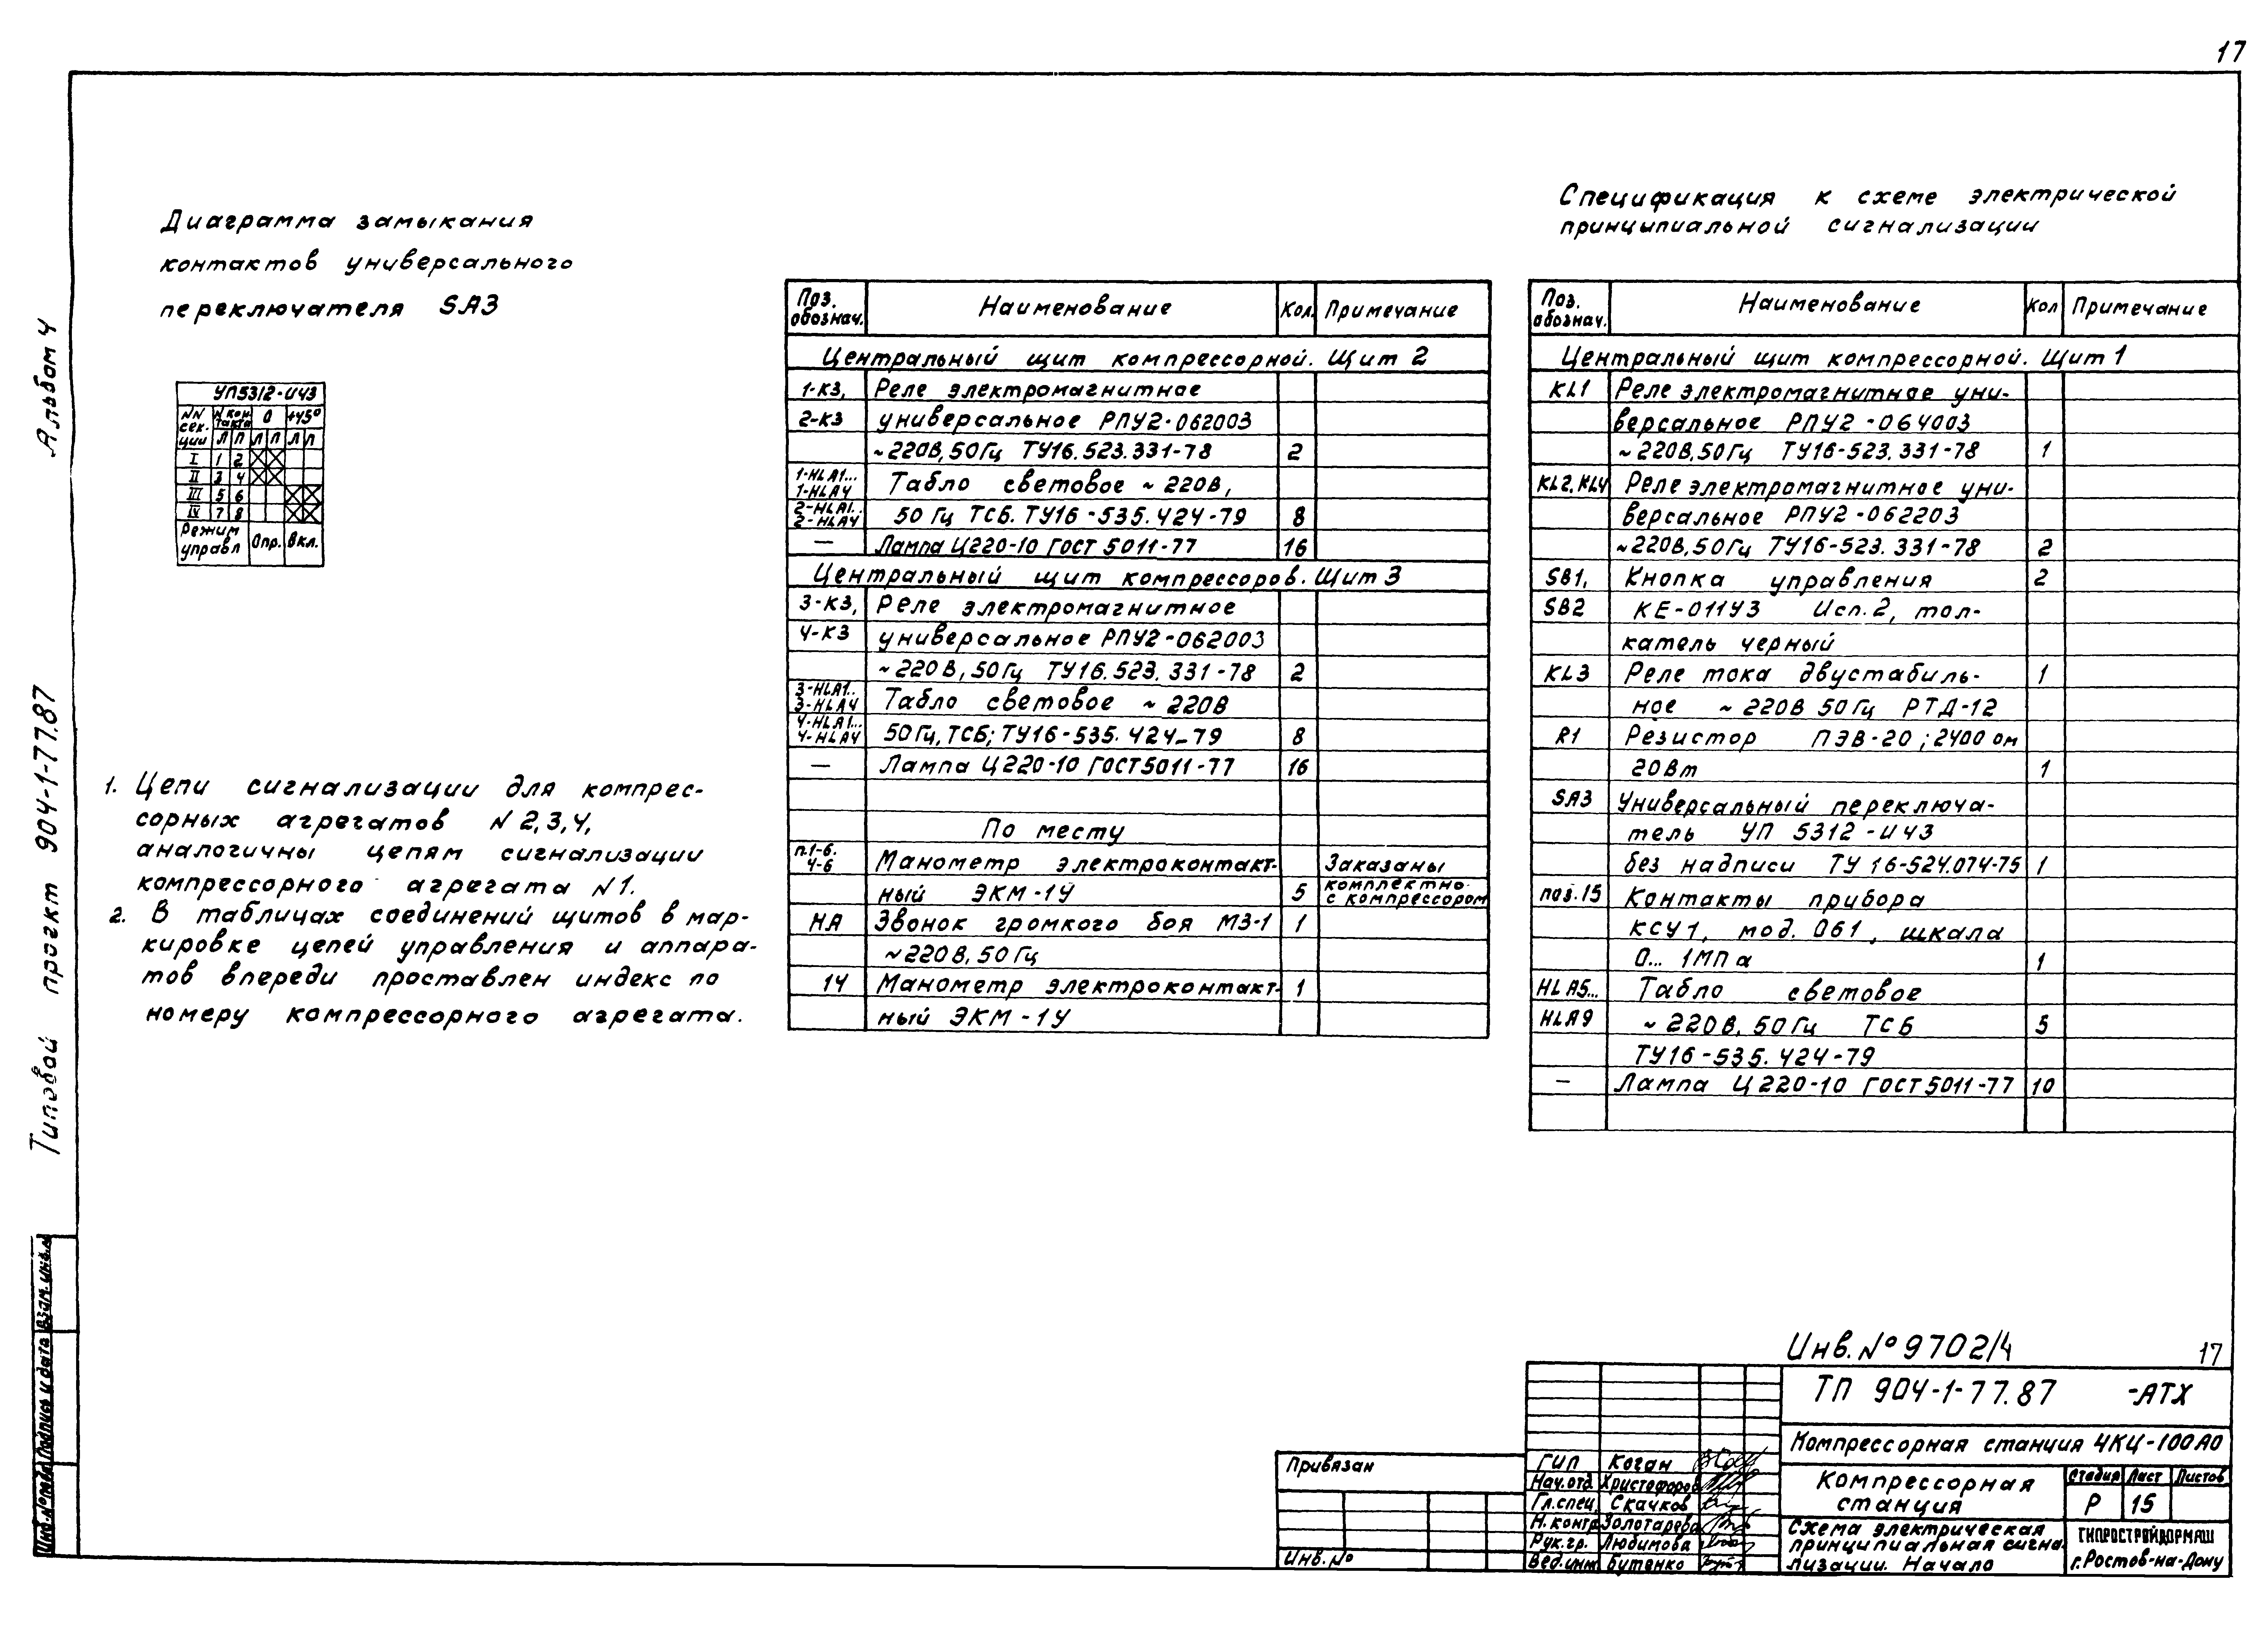 17
Альбом 4
Типовой проект 904-1-77.87
Диаграмма замыкания
контактов универсального
переключателя SA3
УП5312-И43
NN сек. ции | N контакта | 0 | +45°
Л П Л П Л П
I 1 2
II 3 4
III 5 6
IV 7 8
Режим управл Опр. Вкл.
1. Цепи сигнализации для компрес-
сорных агрегатов N 2,3,4,
аналогичны цепям сигнализации
компрессорного агрегата N1.
2. В таблицах соединений щитов в мар-
кировке цепей управления и аппара-
тов впереди проставлен индекс по
номеру компрессорного агрегата.
Поз. обознач. Наименование Кол. Примечание
Центральный щит компрессорной. Щит 2
1-К3, Реле электромагнитное
2-К3 универсальное РПУ2-062003
~220В, 50Гц ТУ16.523.331-78 2
1-HLA1... 1-HLA4 Табло световое ~ 220В,
2-HLA1.. 2-HLA4 50 Гц ТСБ. ТУ16-535.424-79 8
— Лампа Ц220-10 ГОСТ 5011-77 16
Центральный щит компрессоров. Щит 3
3-К3, Реле электромагнитное
4-К3 универсальное РПУ2-062003
~220В, 50Гц ТУ16.523.331-78 2
3-HLA1.. 3-HLA4 Табло световое ~ 220В
4-HLA1... 4-HLA4 50Гц, ТСБ; ТУ16-535.424-79 8
— Лампа Ц220-10 ГОСТ5011-77 16
По месту
п.1-6. 4-6 Манометр электроконтакт- Заказаны
ный ЭКМ-1У 5 комплектно с компрессором
НА Звонок громкого боя МЗ-1 1
~220В, 50Гц
14 Манометр электроконтакт- 1
ный ЭКМ-1У
Спецификация к схеме электрической
принципиальной сигнализации
Поз. обознач. Наименование Кол Примечание
Центральный щит компрессорной. Щит 1
KL1 Реле электромагнитное уни-
версальное РПУ2-064003
~220В, 50Гц ТУ16-523.331-78 1
KL2, KL4 Реле электромагнитное уни-
версальное РПУ2-062203
~220В, 50Гц ТУ16-523.331-78 2
SB1, Кнопка управления 2
SB2 КЕ-011У3 Исп.2, тол-
катель черный
KL3 Реле тока двустабиль- 1
ное ~ 220В 50Гц РТД-12
R1 Резистор ПЭВ-20; 2400 ом
20Вт 1
SA3 Универсальный переключа-
тель УП 5312-И43
без надписи ТУ 16-524.074-75 1
поз.15 Контакты прибора
КСУ1, мод. 061, шкала
0... 1МПа 1
HLA5... Табло световое
HLA9 ~ 220В, 50Гц ТСБ 5
ТУ16-535.424-79
— Лампа Ц220-10 ГОСТ5011-77 10
Инв. № 9702/4 17
ТП 904-1-77.87 -АТХ
Компрессорная станция 4КЦ-100А0
Компрессорная станция
Стадия Лист Листов
Р 15
Схема электрическая
принципиальная сигна-
лизации. Начало
ГИПРОСТРОЙДОРМАШ
г.Ростов-на-Дону
ГИП Коган
Нач.отд. Христофоров
Гл.спец. Скачков
Н.контр Золотарева
Рук.гр. Любимова
Вед.инж Бутенко
Привязан
Инв.№
Взам.инв.№
Подпись и дата
Инв.№ подл